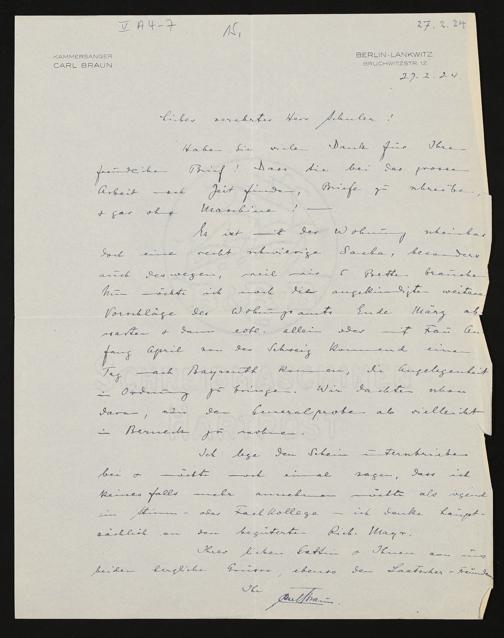 V A 4-7
15,
27. 2. 24
KAMMERSÄNGER
CARL BRAUN
BERLIN-LANKWITZ
BRUCHWITZSTR. 12
27. 2. 24
Lieber verehrter Herr Schuler!
Haben Sie vielen Dank für Ihren
freundlichen Brief! Dass Sie bei der grossen
Arbeit noch Zeit finden, Briefe zu schreiben,
& gar ohne Maschine! —
Es ist mit der Wohnung scheinbar
doch eine recht schwierige Sache, besonders
auch deswegen, weil wir 5 Betten brauchen
Nun möchte ich noch die angekündigten weiteren
Vorschläge des Wohnungsamts Ende März ab
warten & dann evtl. allein oder mit Frau An
fang April von der Schweiz kommend einen
Tag nach Bayreuth kommen, die Angelegenheit
in Ordnung zu bringen. Wir dachten schon
daran, vor der Generalprobe ab vielleicht
in Berneck zu wohnen.
Ich lege den Schein unterschrieben
bei & möchte noch einmal sagen, dass ich
keinesfalls mehr annehmen möchte als irgend
ein Stimm- oder Fachkollege – ich denke haupt-
sächlich an den begüterten Rich. Mayr.
Ihrer lieben Gattin & Ihnen von uns
beiden herzliche Grüsse, ebenso den
Ihr
Carl Braun.